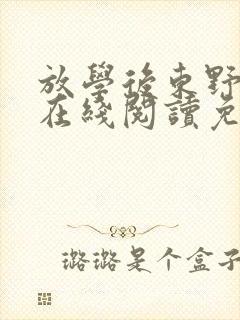 放學後東野
在綫閱讀免
璐璐是个盒子